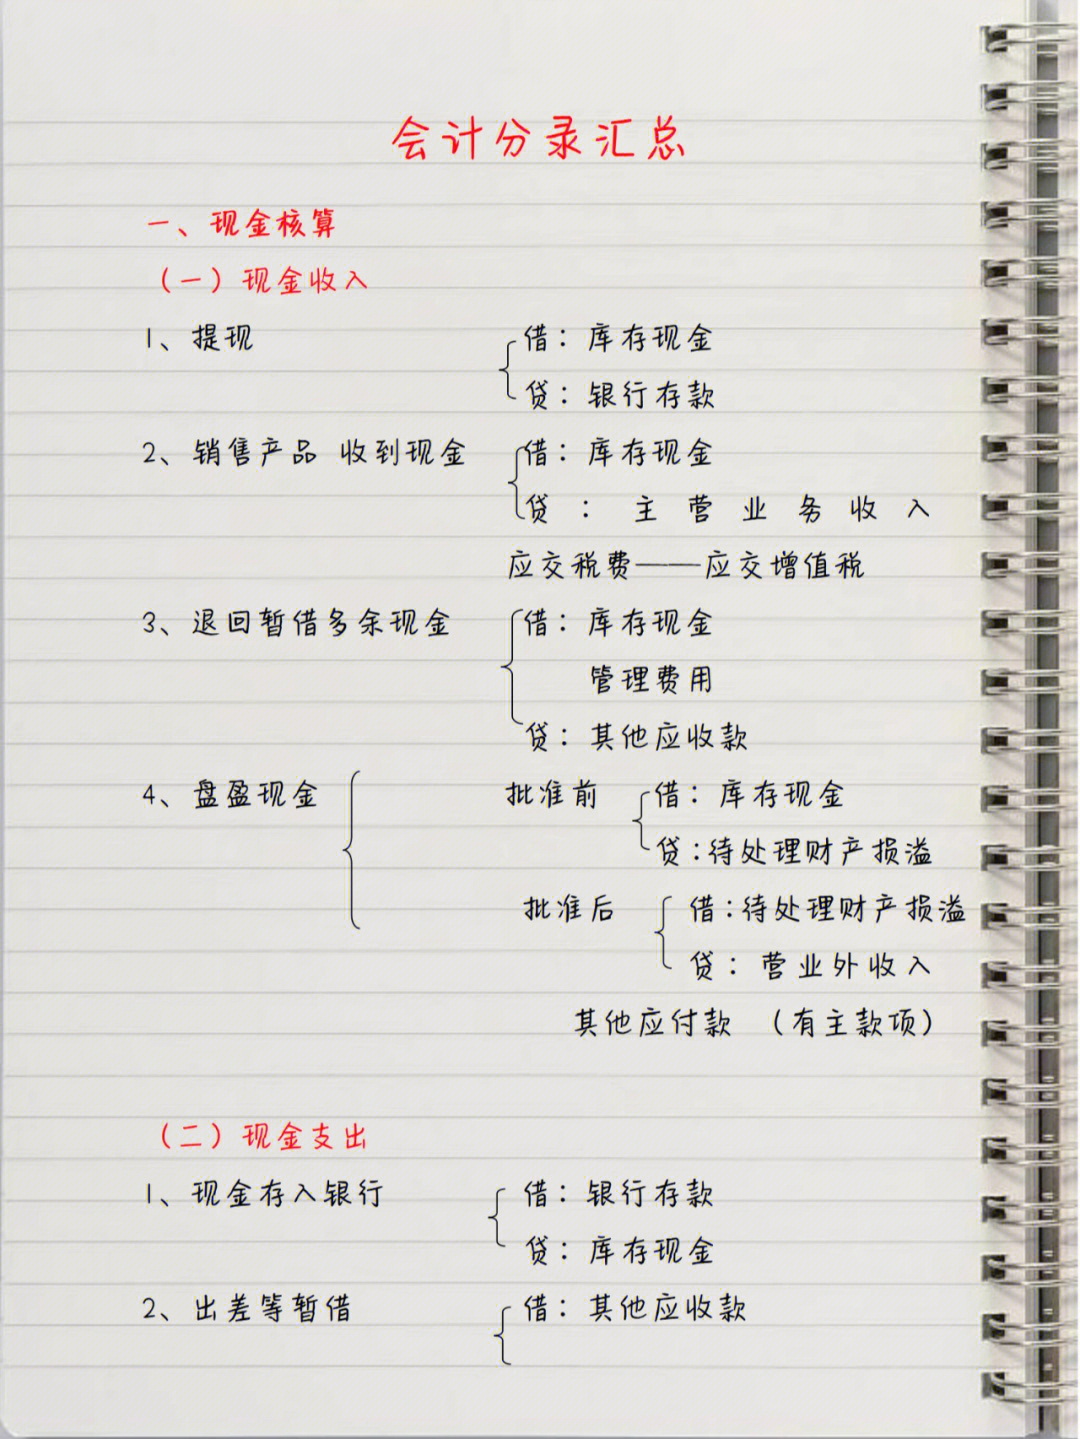 会计分录汇总
一、现金核算
（一）现金收入
1、提现 借：库存现金
贷：银行存款
2、销售产品 收到现金 借：库存现金
贷：主营业务收入
应交税费——应交增值税
3、退回暂借多余现金 借：库存现金
管理费用
贷：其他应收款
4、盘盈现金 批准前 借：库存现金
贷：待处理财产损溢
批准后 借：待处理财产损溢
贷：营业外收入
其他应付款 （有主款项）
（二）现金支出
1、现金存入银行 借：银行存款
贷：库存现金
2、出差等暂借 借：其他应收款